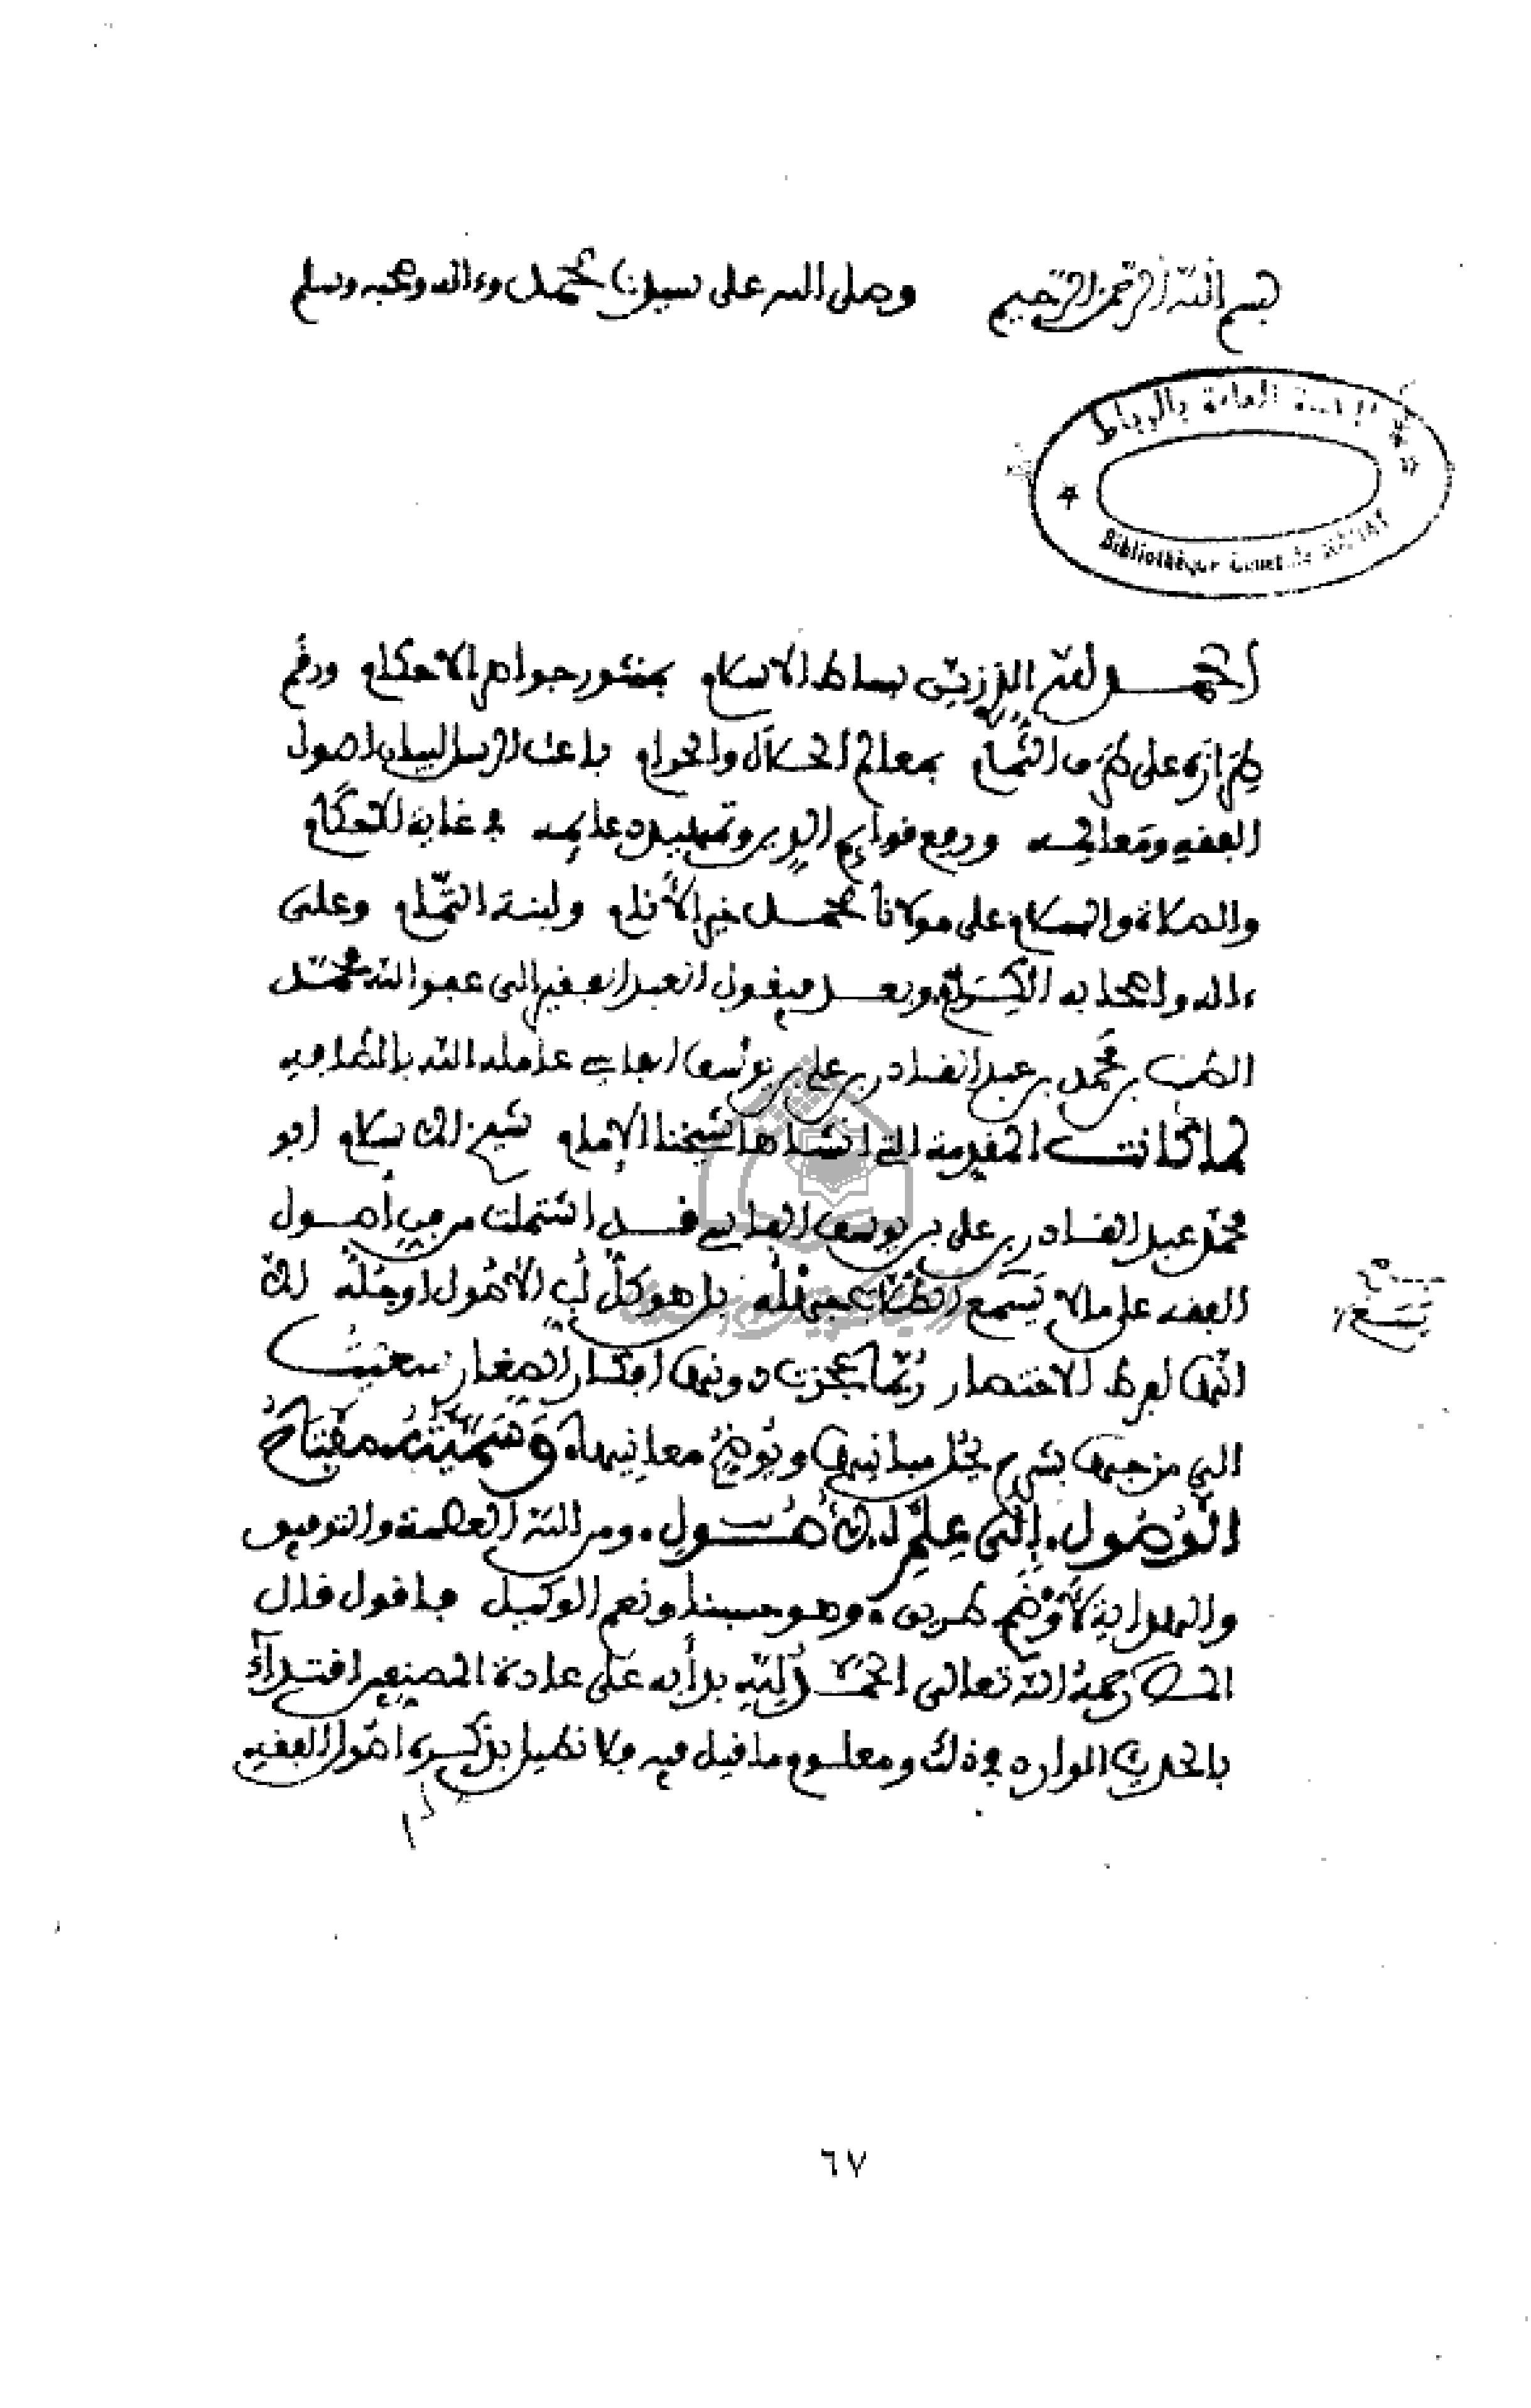 بسم الله الرحمن الرحيم وصلى الله على سيدنا محمد وءاله وصحبه وسلم
العامة بالرباط
Bibliothèque
الحمد لله الذي زين بساط الاسلام بمنثور جواهر الاحكام ورقم
طرازه على طرف التمام بمعالم الحلال والحرام باعث الرسل لبيان اصول
الفقه ومعالمه ورفع قوايم الدين وتمهيد دعايمه في غاية الاحكام
والصلاة والسلام على مولانا محمد خير الأنام ولبنة التمام وعلى
ءاله واصحابه الكرام وبعد فيقول العبد الفقير الى عفو الله محمد
الطيب بن محمد بن عبد القادر بن علي بن يوسف الفاسي عامله الله بالطافه
لما كانت المقدمة التي انشاها شيخنا الإمام شيخ الاسلام ابو
محمد عبد القادر بن علي بن يوسف الفاسي قد اشتملت من فن أصول
الفقه على ما لا يسمع الطلاب جهله بل هو كل لب الأصول او جله الا
انها لفرط الاختصار ربما عجزت دونها افكار الصغار سعيت
الى مزجها بشرح يحل مبانيها ويوضح معانيها وسميته مفتاح
الوصول الى علم الاصول ومن الله العصمة والتوفيق
والهداية لأوضح طريق وهو حسبنا ونعم الوكيل فاقول قال
رحمه الله تعالى الحمد لله بدأ به على عادة المصنفين اقتداء
بالحديث الوارد في ذلك ومعلوم ما قيل فيه فلا نطيل بذكره اصول الفقه
يسع
٦٧